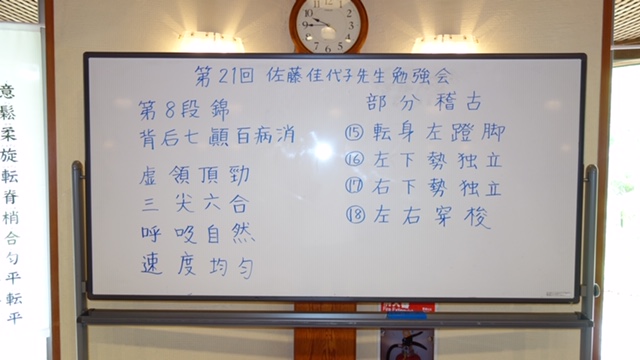 第21回 佐藤佳代子先生勉強会
第8段錦
背后七顚百病消
虚領頂勁
三尖六合
呼吸自然
速度均匀
部分稽古
⑮転身左蹬脚
⑯左下勢独立
⑰右下勢独立
⑱左右穿梭
意鬆柔旋転脊梢合匀平転平